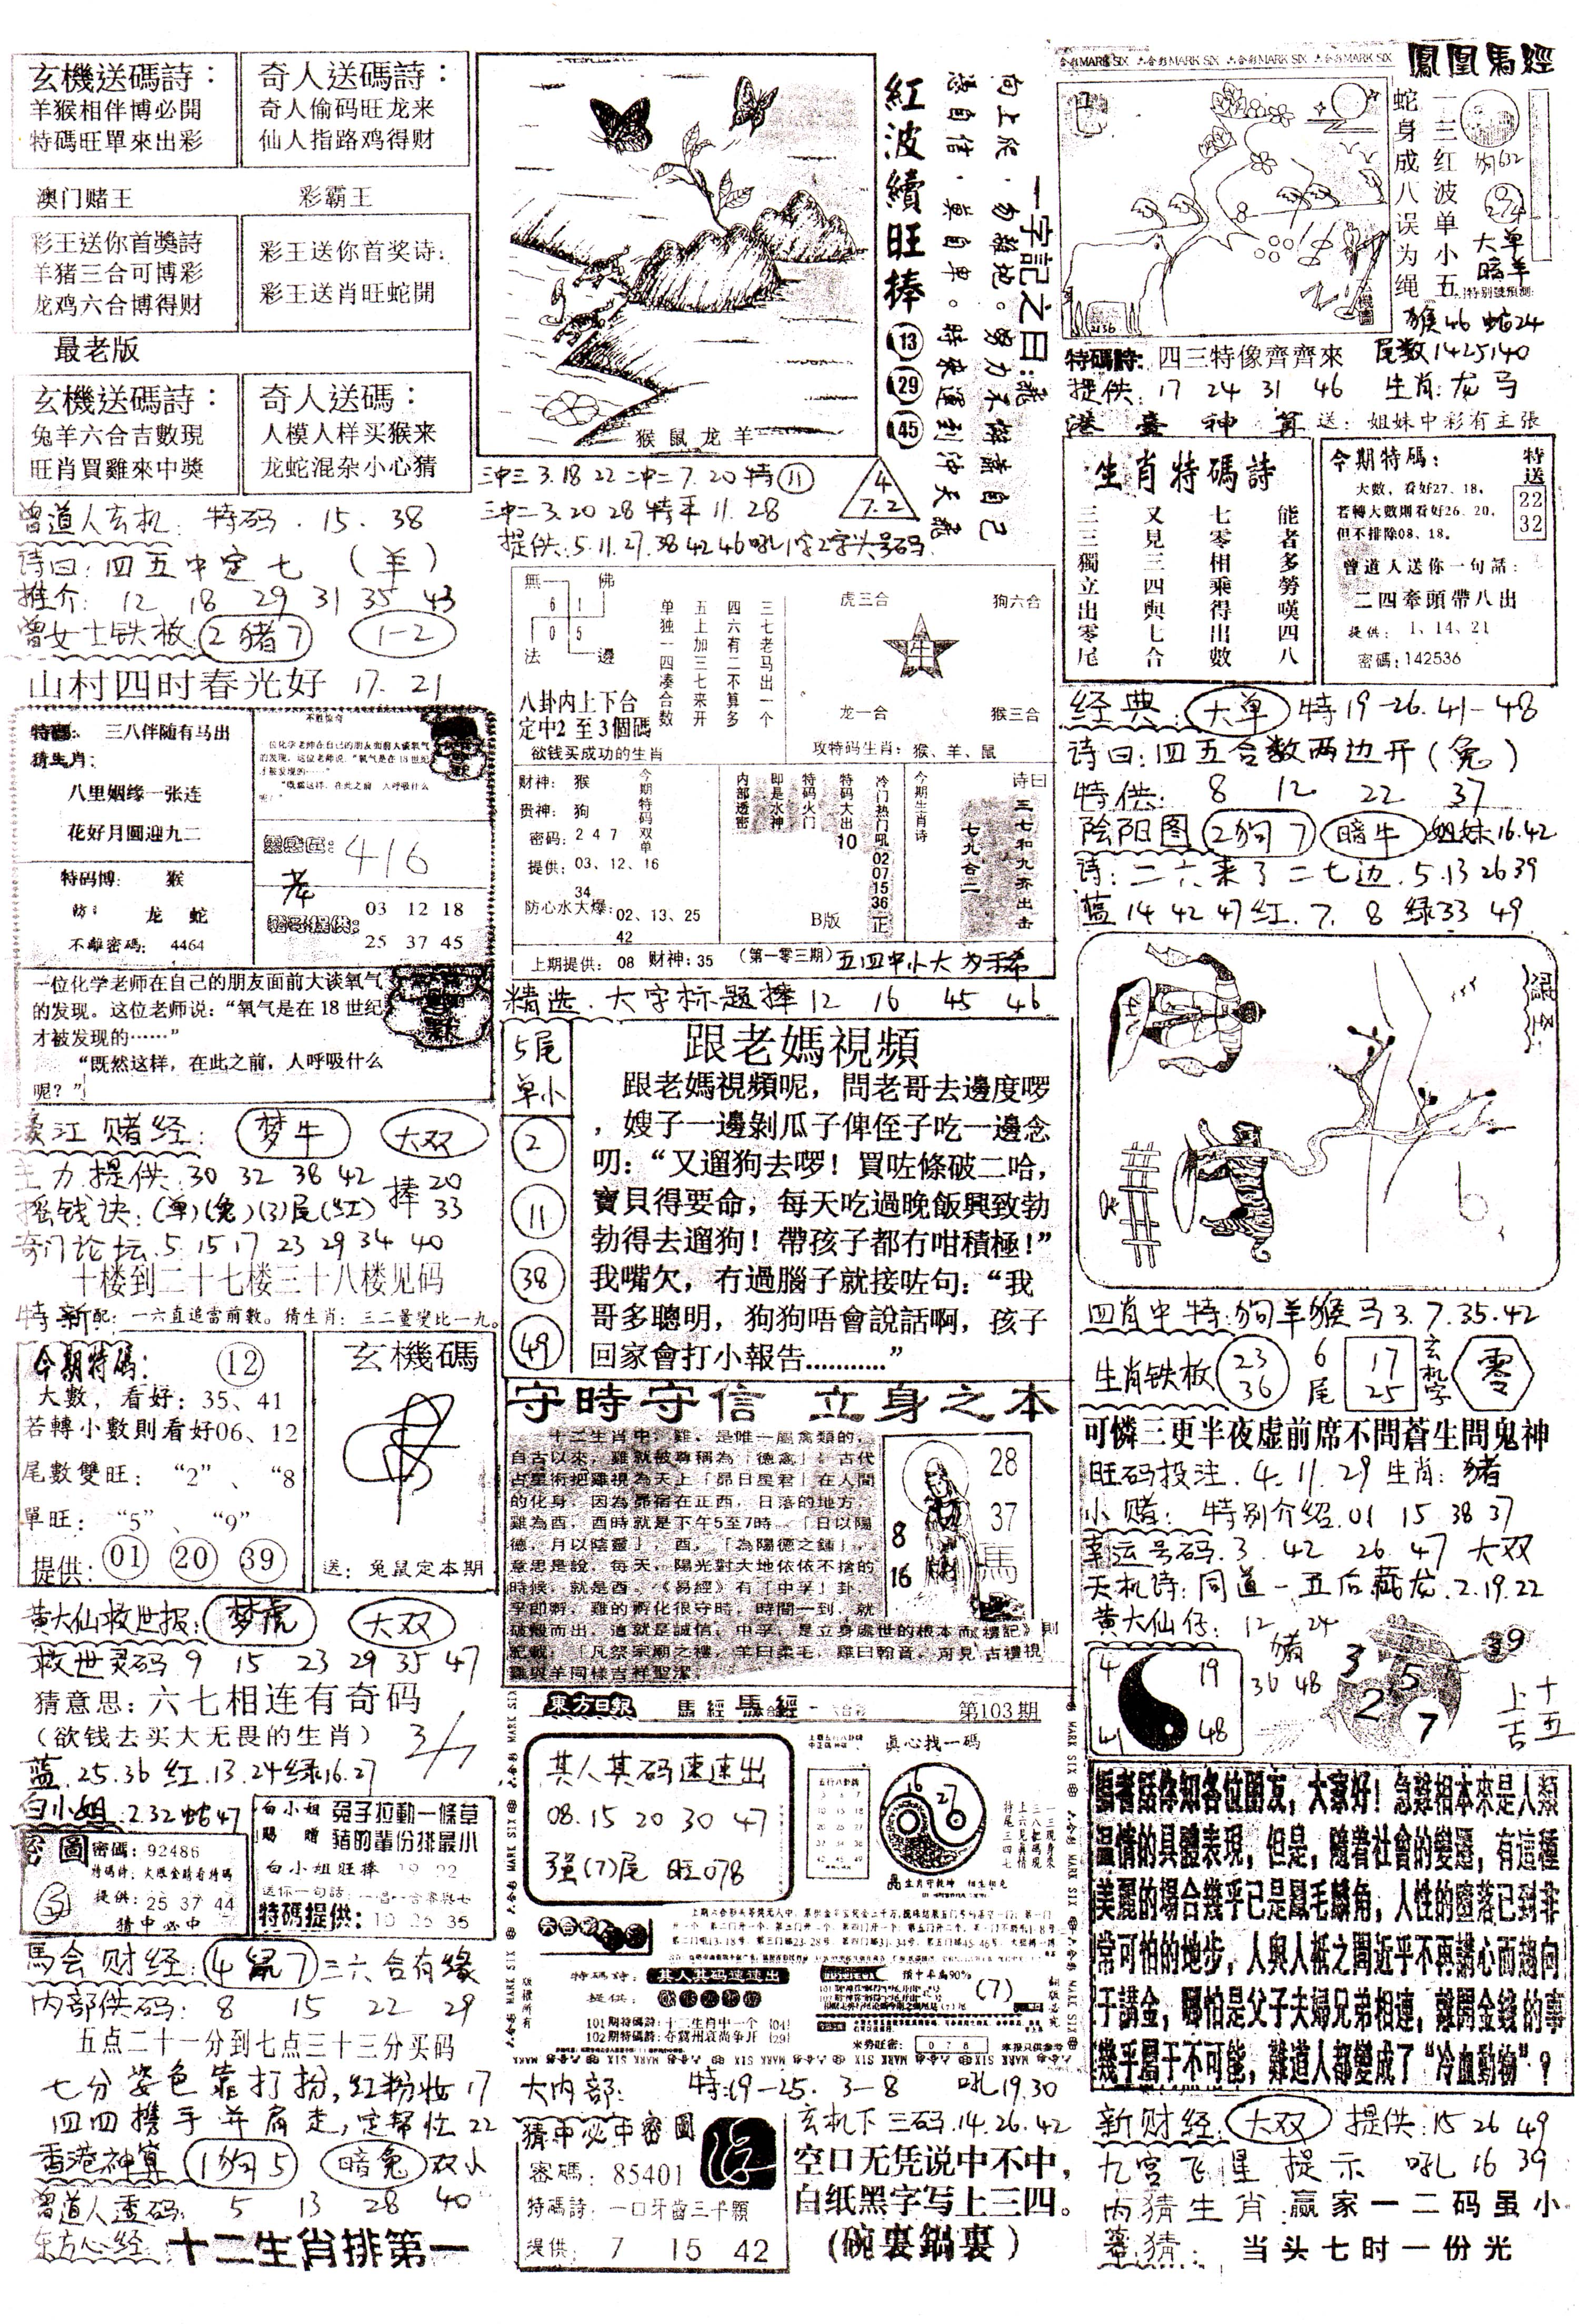 玄機送碼詩：
羊猴相伴博必開
特碼旺單來出彩
奇人送碼詩：
奇人偷码旺龙来
仙人指路鸡得财
澳门赌王
彩霸王
彩王送你首獎詩
羊猪三合可博彩
龙鸡六合博得财
彩王送你首奖诗：
彩王送肖旺蛇開
最老版
玄機送碼詩：
兔羊六合吉數現
旺肖買雞來中獎
奇人送碼：
人模人样买猴来
龙蛇混杂小心猜
曾道人玄机：特码．15．38
诗曰：四五中定七（羊）
推介：12 18 29 31 35 43
曾女士铁板 2猪7 1-2
山村四时春光好 17.21
特碼：三八伴随有马出
猜生肖：
八里姻缘一张连
花好月圆迎九二
特码博：猴
防：龙 蛇
不離密碼：4464
416
03 12 18
25 37 45
一位化学老师在自己的朋友面前大谈氧气
的发现。这位老师说：“氧气是在 18 世纪
才被发现的……”
“既然这样，在此之前，人呼吸什么
呢？”
濠江赌经：梦牛 大双
主力提供：30 32 38 42 捧 20 33
摇钱诀：(单)(兔)(3)尾(红)
奇门论坛．5 15 17 23 29 34 40
十楼到二十七楼三十八楼见码
特新配：一六直追當前數。猜生肖：三二量變比一九。
今期特碼：12
大數，看好：35、41
若轉小數則看好06、12
尾數雙旺：“2”、“8
單旺：“5”、“9”
提供：01 20 39
玄機碼
送：兔鼠定本期
黄大仙救世报：梦虎 大双
救世灵码 9 15 23 29 35 47
猜意思：六七相连有奇码
（欲钱去买大无畏的生肖）
蓝．25.36 红．13.24 绿16.27
白小姐．2.32 蛇47
密圖
密碼：92486
提供：25 37 44
猜中必中
白小姐賜贈
兔子拉動一條草
豬的輩份排最小
白小姐旺捧 19 22
特碼提供：10 26 36
馬会财经：4鼠7 二六合有缘
内部供码：8 15 22 29
五点二十一分到七点三十三分买码
七分姿色靠打扮，红粉妆17
四四携手并肩走，定帮忙22
香港神算 1狗5 暗兔 双小
曾道人透码：5 13 28 40
东方心经 十二生肖排第一
猴鼠龙羊
紅波續旺捧 13 29 45
一字記之曰：
向上爬，勿離地。努力不懈憑自己
三中三 3.18 22 二中二 7.20 特11
三中二 3.20 28 特平 11.28
4
7.2
提供：5.11.27.38 42 46 吼1字2字头号码
無 佛
6 1
0 5
法 邊
八卦内上下台
定中2 至3個碼
三七老马出一个
四六有二不算多
五上加三七来开
单独一四凑合数
虎三合 狗六合
牛
龙一合 猴三合
欲钱买成功的生肖
攻特码生肖：猴、羊、鼠
财神：猴
贵神：狗
密码：2 4 7
提供：03、12、16
34
防心水大爆：02、13、25
42
今期特码双单
内部透密
即是水神
特码火门
特码大出10
冷门热门吼 02 07 15 36 正
B版
今期生肖诗
诗曰
三七和九齐出击
七九合二
上期提供：08 财神：35（第一零三期）五四中小大为稀
精选．大字标题捧 12 16 45 46
5尾
单小
2
11
38
49
跟老媽視頻
跟老媽視頻呢，問老哥去邊度啰
，嫂子一邊剝瓜子俾侄子吃一邊念
叨：“又遛狗去啰！買咗條破二哈，
寶貝得要命，每天吃過晚飯興致勃
勃得去遛狗！帶孩子都冇咁積極！”
我嘴欠，冇過腦子就接咗句：“我
哥多聰明，狗狗唔會說話啊，孩子
回家會打小報告…………”
守時守信 立身之本
十二生肖中，雞，是唯一屬禽類的，
自古以來，雞就被尊稱為「德禽」。古代
占星術把雞視為天上「昴日星君」在人間
的化身，因為昴宿在正西，日落的地方，
雞為酉，酉時就是下午5至7時。「日以陽
德，月以陰靈」，酉，「為陽德之鍾」，
意思是說，每天，陽光對大地依依不捨的
時候，就是酉。《易經》有「中孚」卦，
孚即孵，雞的孵化很守時，時間一到，就
破殼而出，這就是誠信。中孚，是立身處世的根本而《禮記》則
記載：「凡祭宗廟之禮，羊曰柔毛，雞曰翰音。可見，古禮視
雞與羊同樣吉祥聖潔。
28
37
馬
8
16
東方日報 馬經 第103期
其人其码速速出
08.15 20 30 47
强(7)尾 旺078
真心找一碼
16 27
特碼詩：其人其码速速出
提供：
預中率高90%
(7)
101期特碼詩：十二生肖中一个 (04)
102期特碼詩：夺冀州袁尚争开 (29)
大内部：特：19-25．3-8 吼19.30
猜中必中密圖
密碼：85401
特碼詩：一口牙齒三千顆
提供：7 15 42
玄机下三码．14.26.42
空口无凭说中不中，
白纸黑字写上三四。
（碗裏鍋裏）
鳳凰馬經
一三红波单小五
蛇身成八误为绳
狗632
大单
暗羊
特别號預測：
猴46 蛇24
尾数1425140
特碼詩：四三特像齊齊來
提供：17 24 31 46 生肖：龙马
港臺神算 送：姐妹中彩有主張
生肖特碼詩
能者多勞嘆四八
七零相乘得出數
又見三四與七合
三三獨立出零尾
今期特碼：
大數，看好27、18。
若轉大數則看好26、20。
但不排除08、18。
特送
22
32
曾道人送你一句話：
二四牽頭帶八出
提供：1、14、21
密碼：142536
经典：大单 特19-26.41-48
诗曰：四五合数两边开（兔）
特供：8 12 22 37
阴阳图 2狗7 暗牛 姐妹16.42
诗：二六来了二七边．5.13 26 39
蓝14 42 47 红．7．8 绿33 49
四肖中特：狗羊猴马 3.7.35.42
生肖铁板 23 36 6尾 17 25 玄机字 零
可憐三更半夜虛前席不問蒼生問鬼神
旺码投注．4.11.29 生肖：猪
小赌：特别介绍．01 15 38 37
幸运号码．3．42 26．47 大双
天机诗：同道一五后藏龙．2.19.22
黄大仙仔：12 24
猪
36 48
4 19
41 48
3 5 2 7
39
十五上吉
編者話你知各位朋友，大家好！急難相本來是人類
溫情的具體表現，但是，隨着社會的變遷，有這種
美麗的場合幾乎已是鳳毛麟角，人性的墮落已到非
常可怕的地步，人與人衹之間近乎不再講心而趨向
于講金，哪怕是父子夫婦兄弟相連，離開金錢的事
幾乎屬于不可能，難道人都變成了“冷血動物”？
新财经：大双 提供：15 26 49
九宫飞星提示 吼16 39
内猜生肖：赢家一二码虽小
当头七时一份光